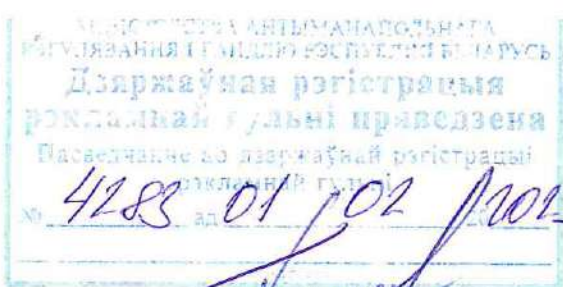 МІНІСТЭРСТВА АНТЫМАНАПОЛЬНАГА
РЭГУЛЯВАННЯ І ГАНДЛЮ РЭСПУБЛІКІ БЕЛАРУСЬ
Дзяржаўная рэгістрацыя
рэкламнай гульні праведзена
Пасведчанне аб дзяржаўнай рэгістрацыі
рэкламнай гульні
№ 4283 ад 01 02 202